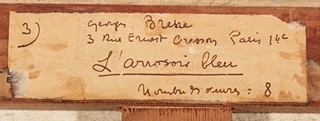 3)
Georges Breke
3 Rue Ernest Cresson Paris 14e
L'arrosoir bleu
Nombre d'œuvres = 8